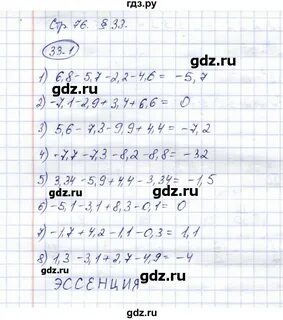 gdz.ru
Стр. 76. § 33.
33.1
1) 6,8 - 5,7 - 2,2 - 4,6 = -5,7
2) -7,1 - 2,9 + 3,4 + 6,6 = 0
3) 5,6 - 7,3 - 9,9 + 4,4 = -7,2
4) -7,7 - 7,3 - 8,2 - 8,8 = -32
5) 3,34 - 5,9 + 4,4 - 3,34 = -1,5
6) -5,1 - 3,1 + 8,3 - 0,1 = 0
7) -1,7 + 4,2 - 1,1 - 0,3 = 1,1
8) 1,3 - 3,1 + 2,7 - 4,9 = -4
ЭССЕНЦИЯ
gdz.ru
gdz.ru
gdz.ru
gdz.ru
gdz.ru
gdz.ru
gdz.ru